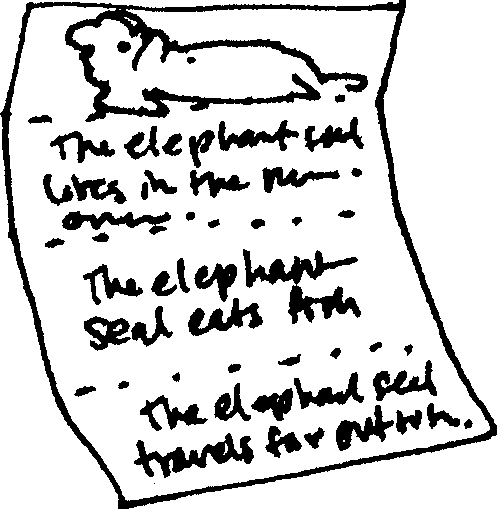 The elephant seal
lives in the
The elephant
seal eats fish
The elephant seal
travels far out